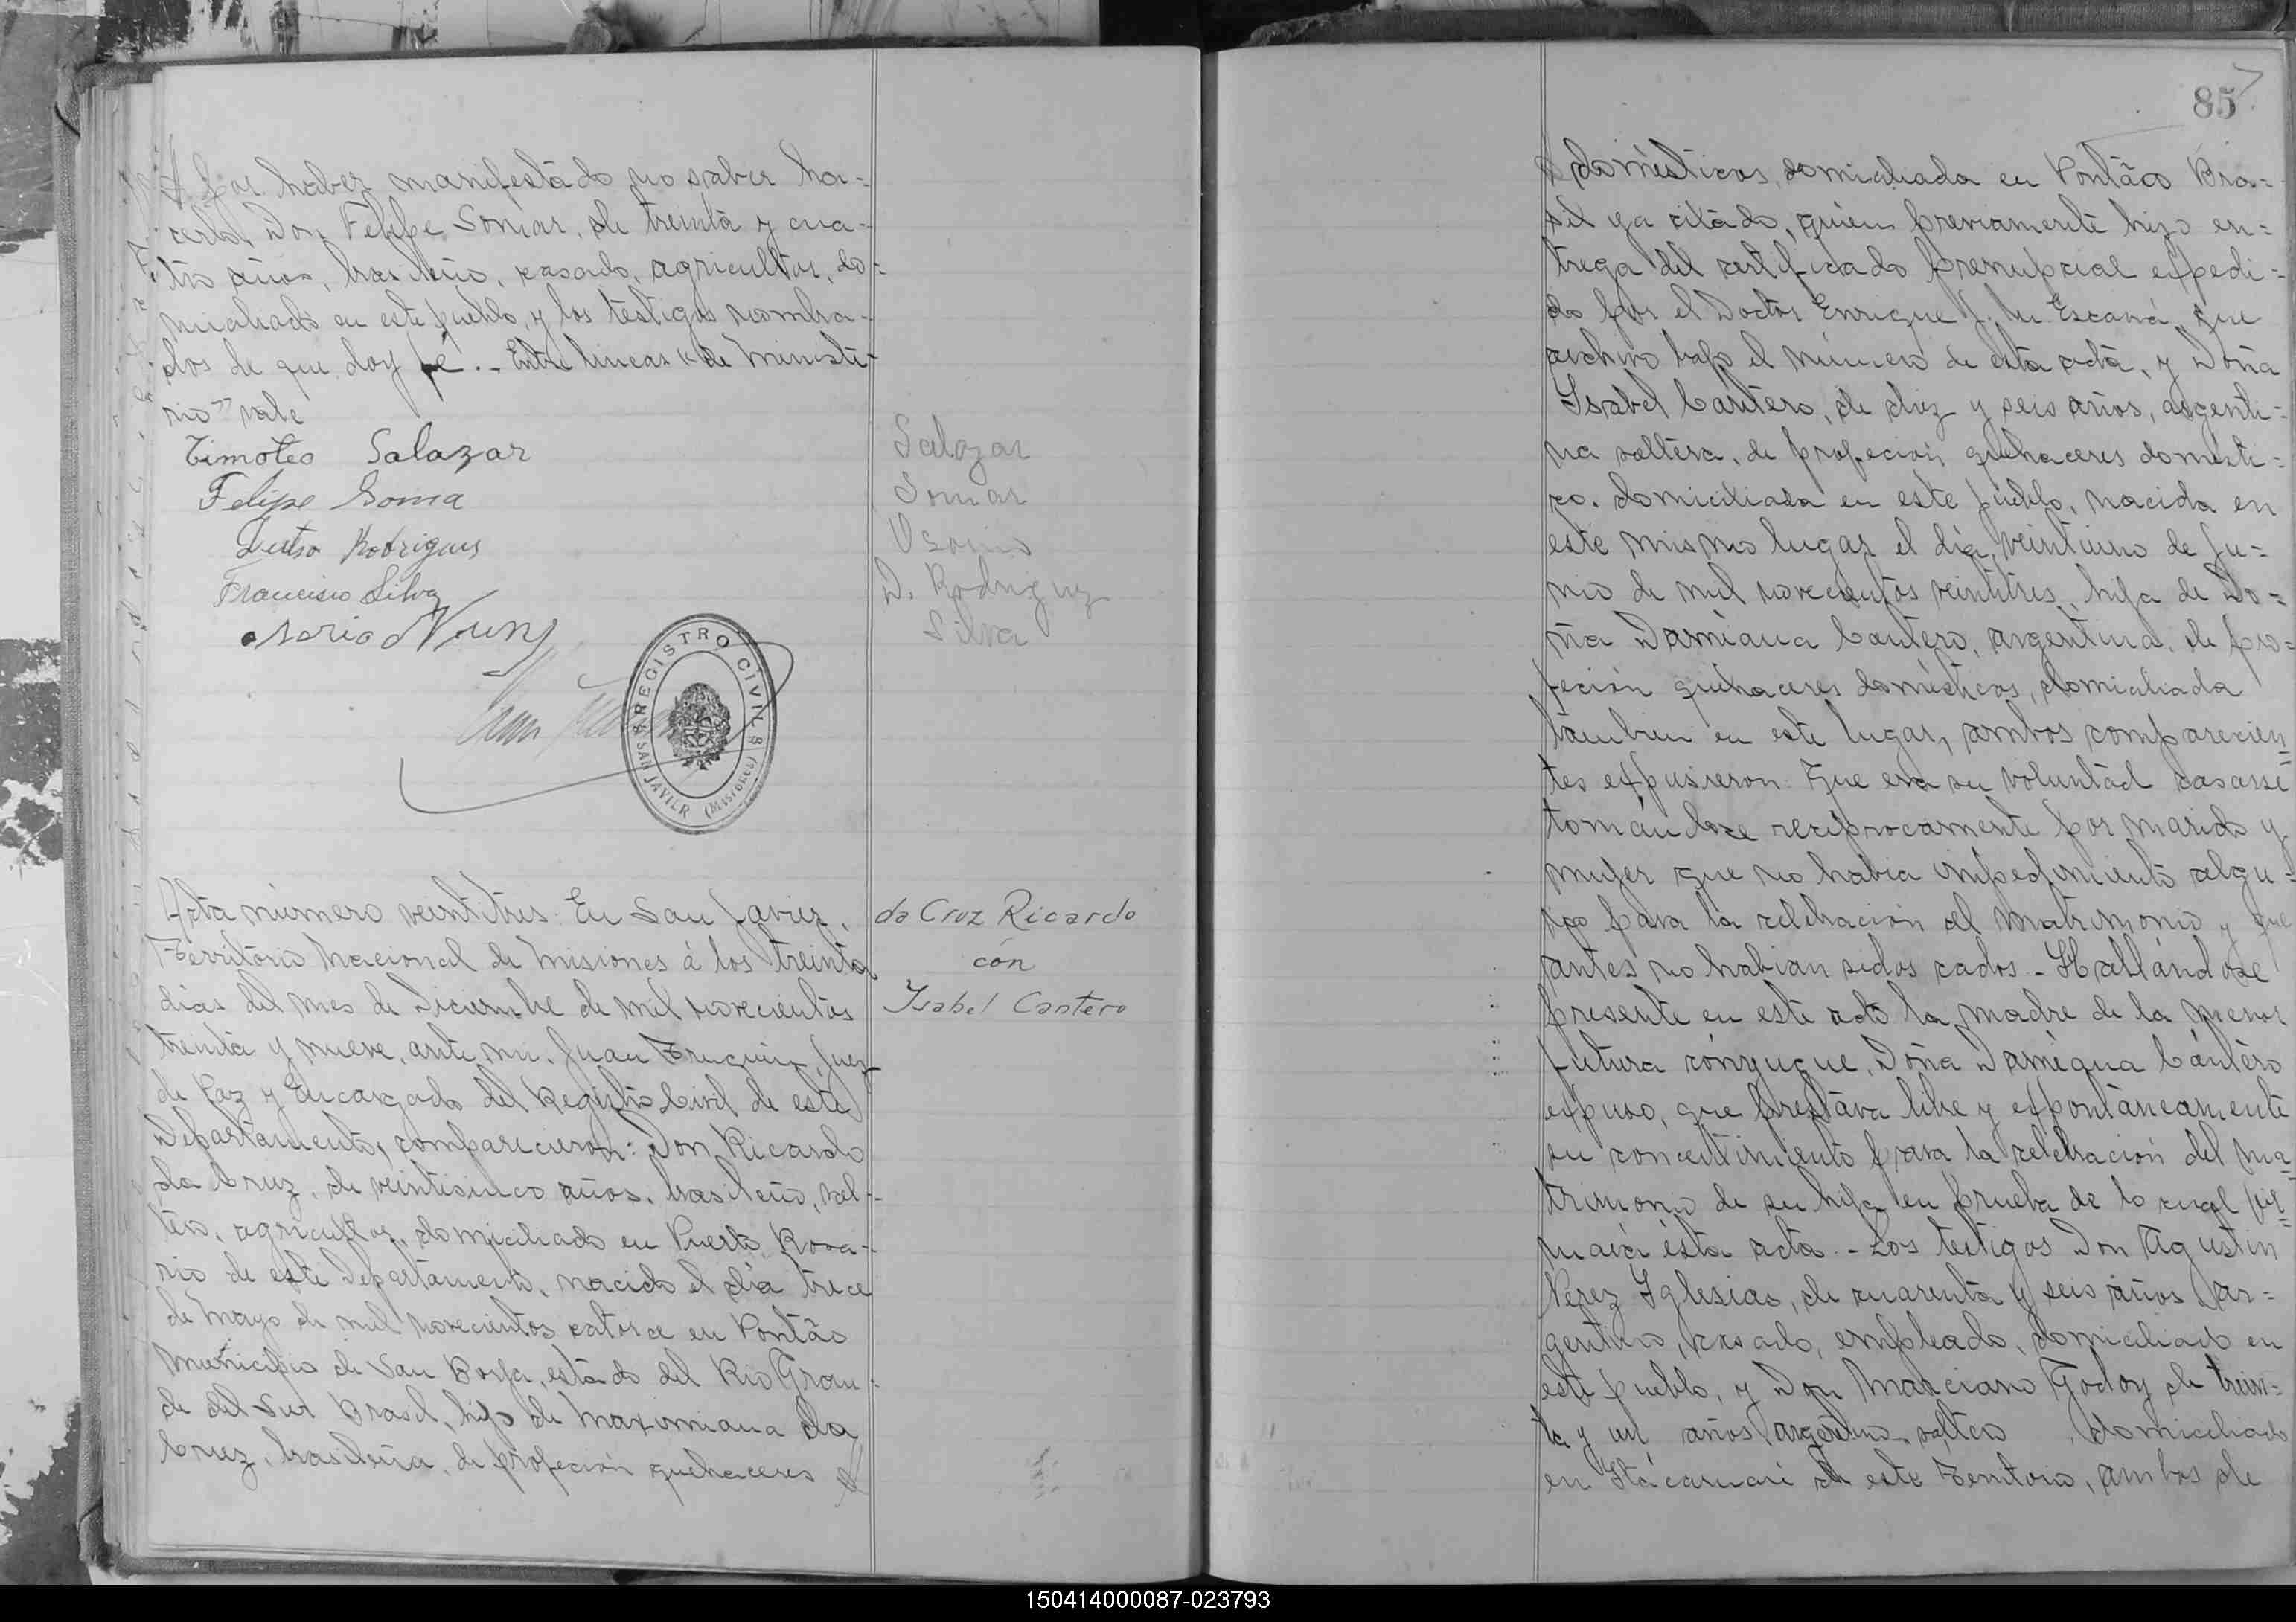 por haber manifestado no saber ha-
cerlo, Don Felipe Somar, de treinta y cua-
tro años, brasileño, casado, agricultor, do-
miciliado en este pueblo, y los testigos nombra-
dos de que doy fé.- Entre lineas "de Ministe-
rio" vale
Timoteo Salazar
Felipe Soma
Rodrigues
Francisco Silva
Salazar
Somar
Osorio
D. Rodriguez
Silva
REGISTRO CIVIL
SAN JAVIER (MISIONES)
Acta número veintitres: En San Javier,
Territorio Nacional de Misiones á los treinta
dias del mes de Diciembre de mil novecientos
treinta y nueve, ante mi, Juan Juez
de Paz y Encargado del Registro Civil de este
Departamento, comparecieron: Don Ricardo
da Cruz, de veintisinco años, brasileño, sol-
tero, agricultor, domiciliado en Puerto Rosa-
rio de este Departamento, nacido el día trece
de Mayo de mil novecientos catorce en Pontão
Municipio de San Borja, estado del Rio Gran-
de del Sur Brasil, hijo de Maximiana da
Cruz, brasileña, de profeción quehaceres
da Cruz Ricardo
cón
Isabel Cantero
85
domésticos, domiciliada en Pontão Bra-
sil ya citado, quien previamente hizo en-
trega del certificado prenupcial expedi-
do por el Doctor Enrique J. M. Escaná que
archivo bajo el número de esta acta, y Doña
Isabel Cantero, de diez y seis años, argenti-
na soltera, de profeción quehaceres domésti-
co. domiciliada en este pueblo, nacida en
este mismo lugar el día, veintiuno de Ju-
nio de mil novecientos veintitres, hija de Do-
ña Damiana Cantero, argentina, de pro-
feción quehaceres domésticos, domiciliada
tambien en este lugar, ambos comparecien-
tes expusieron: Que era su voluntad casarse
tomándose reciprocamente por marido y
mujer que no habia impedimiento algu-
no para la celebración del matrimonio y que
antes no habian sidos cados - Hallándose
presente en este acto la madre de la menor
futura cónyugue, Doña Damiana Cántero
expuso, que prestava libre y expontáneamente
su concentimiento para la celebración del ma-
trimonio de su hija en prueba de lo cual fir-
mará ésta acta.- Los testigos Don Agustin
Perez Iglesias, de cuarenta y seis años, ar-
gentino, casado, empleado, domiciliado en
este pueblo, y Don Marciano Godoy, de trein-
ta y un años, argentino soltero, domiciliado
en Itacaruaré de este Territorio, ambos de
150414000087-023793